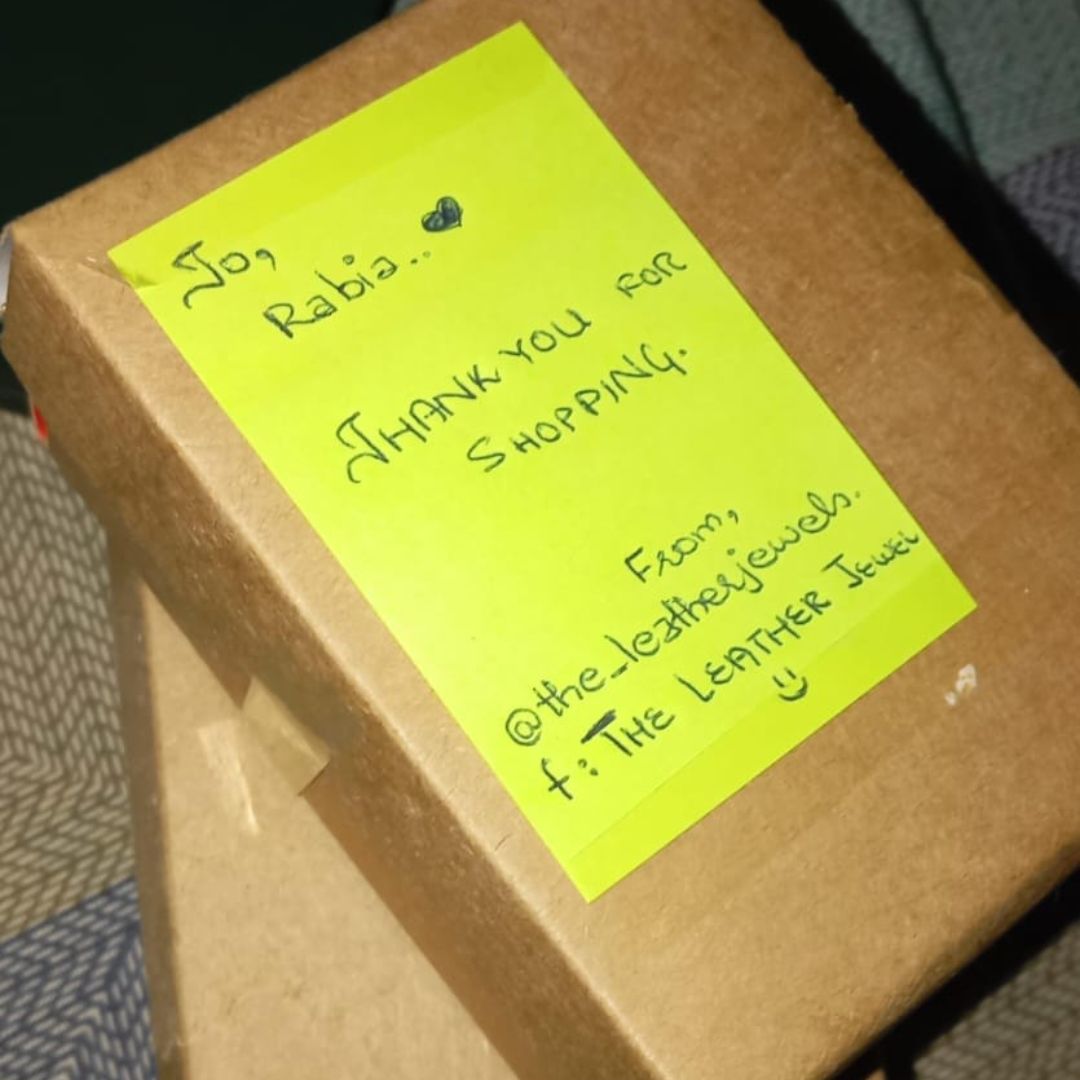 To,
Rabia.. ♥
THANK YOU FOR
SHOPPING.
From,
@the_leatherjewels.
f: THE LEATHER JEWEL
:)